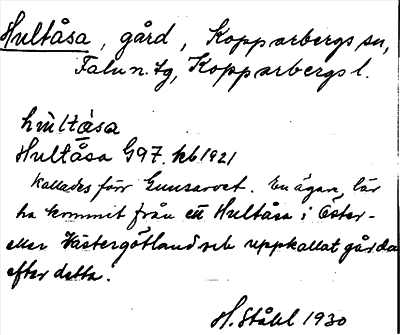 Hultåsa, gård, Kopparbergs sn,
Falu n. tg, Kopparbergs l.
hu̇ltå̀sa
Hultåsa G97. kb 1921
Kallades förr Gunsarvet. En ägare, lär
ha kommit från ett Hultåsa i Öster-
eller Västergötland och uppkallat gården
efter detta.
H. Ståhl 1930